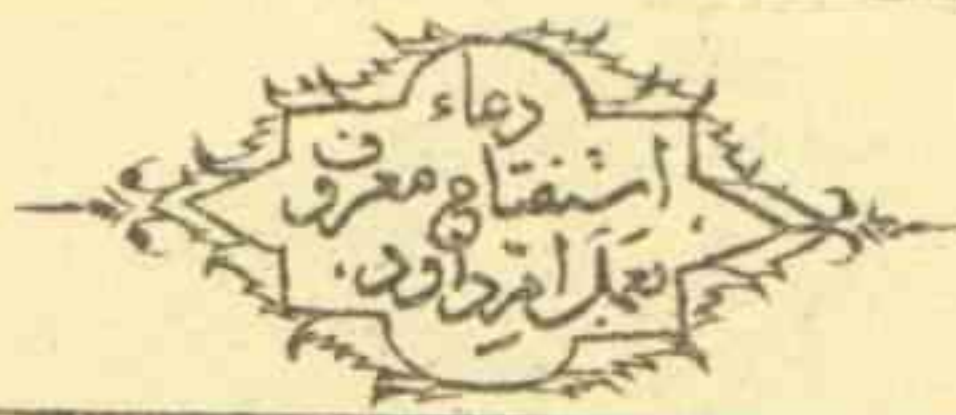 دعاء
استفتاح معروف
بعمل ام داود